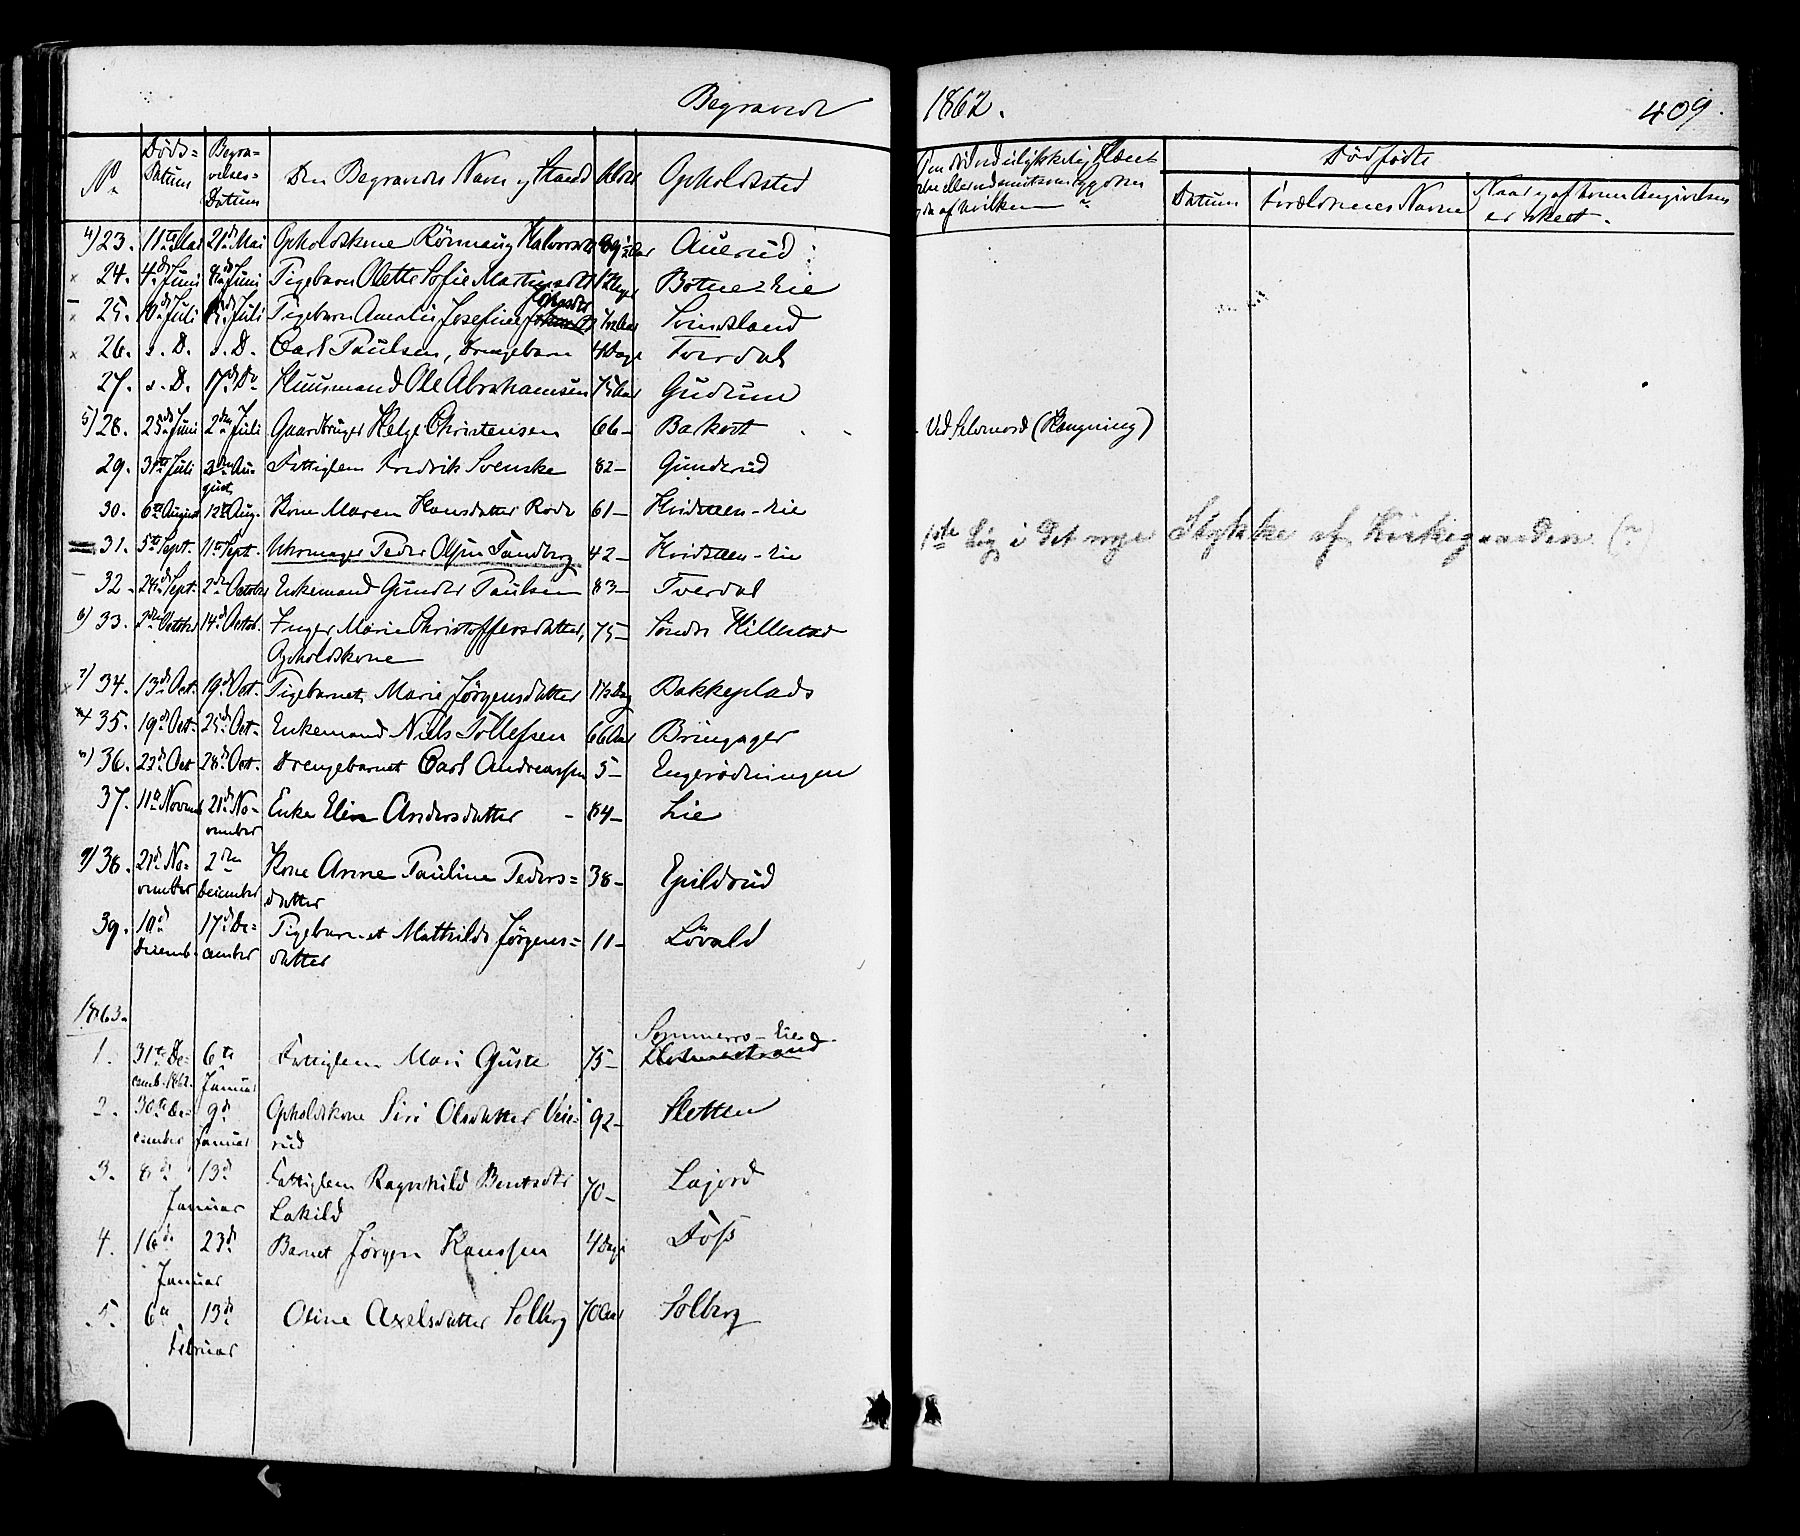 Begravede 1862. 409.
No. Døds-Datum Begravelses-Datum Den Begravedes Navn og Stand Alder Opholdssted
Dødfødte
Datum Forældrenes Navne Naar og af hvem Angivelsen er skeet.
4) 23. 11te Mai 21de Mai Opholdskone Rönnaug Halvorsd. Auerud
24. 4de Juni 8de Juni Pigebarn Olette Sofie Martinsdtr 12 Uger Botne-Eie
25. Juli Juli Pigebarn Amalie Josefine Svindsland
26. s. D. s. D. Carl Paulsen, Drengebarn 4 Dage Tverdal
27. s. D. 17de Do Huusmand Ole Abrahamsen 75 Aar Gudum
5) 28. 25de Juni 2den Juli Gaardbruger Helge Christensen 66 – Barkost Ved Selvmord (Hængning)
29. 31te Juli August Fattiglem Fredrik Svenske 82 – Gunderud
30. 6te August 12te Aug. Kone Maren Hansdatter Röde 61 – Hvidsteen-Eie
31. 5te Sept. 11te Sept. Uhrmager Peder Olsen Sandberg 42 – Hvidsteen-Eie 1ste Lig i det nye Stykke af Kirkegaarden (?
32. Sept. 2den October Enkemand Gunder Paulsen 83 – Tverdal
6) 33. 2den October 14de Octob. Inger Marie Christoffersdatter, 75 – Söndre Hillestad
Opholdskone
7) 34. 13de Oct. 19de Oct. Pigebarnet Marie Jörgensdatter Bakkeplads
35. 19de Oct. 25de Oct. Enkemand Niels Tollefsen 66 Aar Bringager
36. 22de Oct 28de Oct. Drengebarnet Carl Andreassen 5 – Engerödningen
37. 11te Novemb. 21de November Enke Elin Andersdatter 84 – Lie
9) 38. 21de November 2den December Kone Anne Pauline Peders= 38 –
datter
39. 10de Decemb. 17de December Pigebarnet Mathilde Jörgens= 11 – Lövald
datter
1863.
Sommerro-Eie
1. 31te Decemb. 1862. 6te Januar Fattiglem Mari Guste 75 – Holmestrand
2. 30te December 9de Januar Opholdskone Siri Olesdatter Veie= 92 – Sletten
rud
3. 8de 13de Januar Fattiglem Ragnhild Bentsdtr 70 – Lajord
Lakild
4. 16de 23de Januar Barnet Jörgen Hanssen 4 Dage Foss
5. 6te 13de Februar Oline Axelsdatter Solberg 70 Aar Solberg